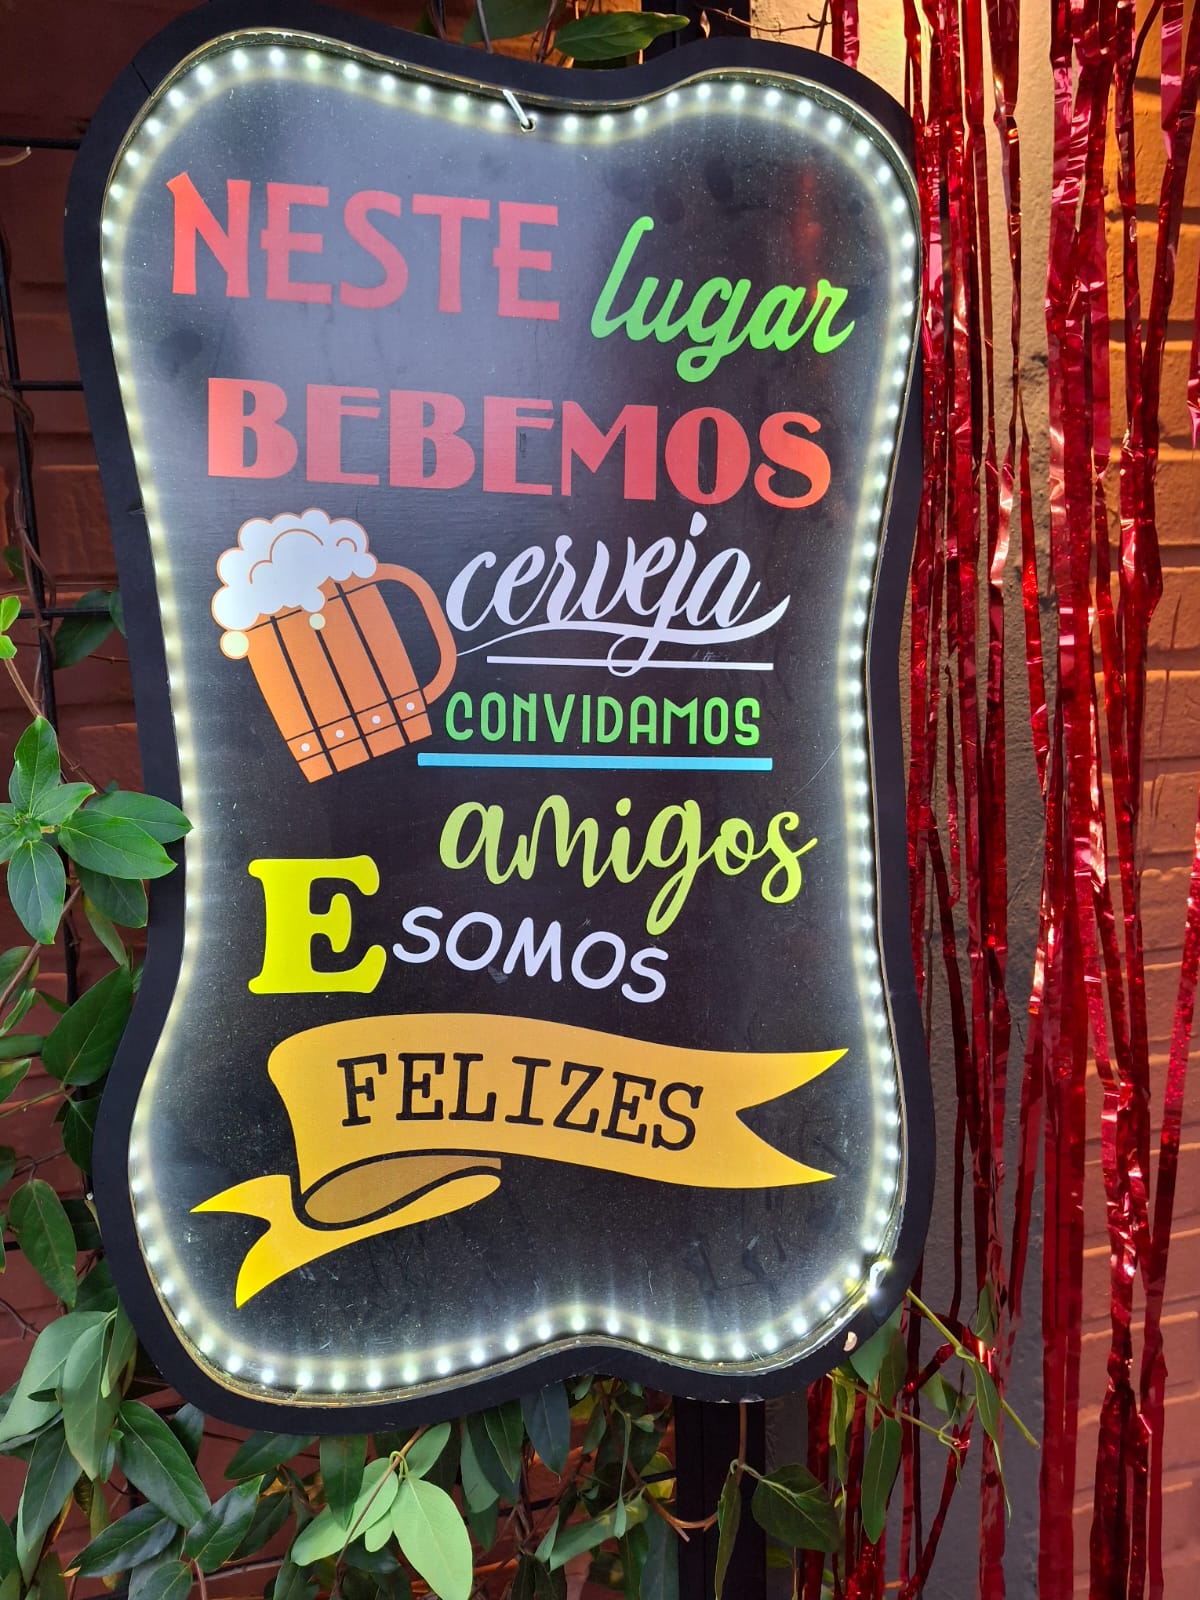 NESTE lugar
BEBEMOS
cerveja
CONVIDAMOS
amigos
E SOMOS
FELIZES